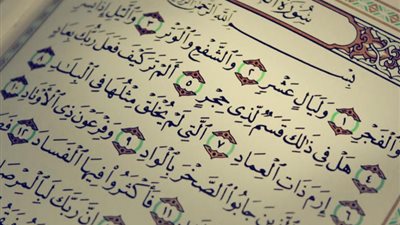 سُورَةُ
بِسْمِ اللَّهِ الرَّحْمَٰنِ
وَالْفَجْرِ ١ وَلَيَالٍ عَشْرٍ ٢ وَالشَّفْعِ وَالْوَتْرِ ٣ وَاللَّيْلِ إِذَا يَسْرِ
٤ هَلْ فِي ذَٰلِكَ قَسَمٌ لِّذِي حِجْرٍ ٥ أَلَمْ تَرَ كَيْفَ فَعَلَ رَبُّكَ بِعَادٍ
٦ إِرَمَ ذَاتِ الْعِمَادِ ٧ الَّتِي لَمْ يُخْلَقْ مِثْلُهَا فِي الْبِلَادِ ٨
الَّذِينَ جَابُوا الصَّخْرَ بِالْوَادِ ٩ وَفِرْعَوْنَ ذِي الْأَوْتَادِ
١١ فَأَكْثَرُوا فِيهَا الْفَسَادَ ١٢
إِنَّ رَبَّكَ لَبِالْمِرْصَادِ